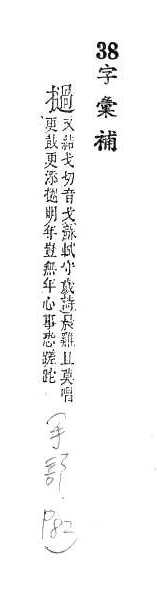 38字彙補
撾
又戈切音戈蘇軾守歲詩晨雞且莫唱
更鼓更添撾明年豈無年心事恐蹉跎
(手部. P82)